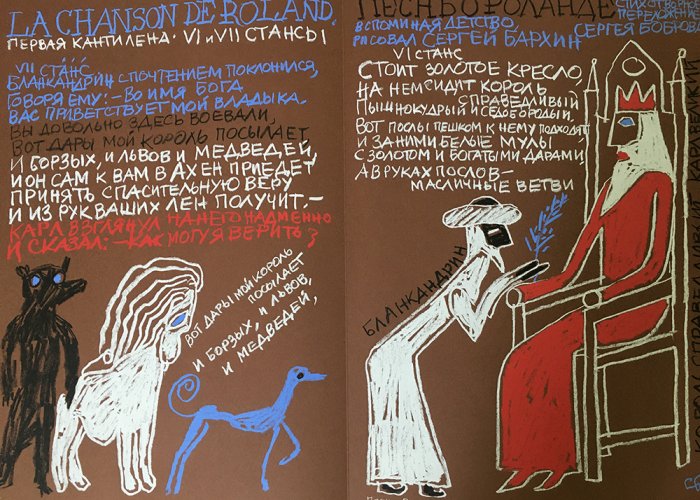 LA CHANSON DE ROLAND.
ПЕРВАЯ КАНТИЛЕНА· VI и VII СТАНСЫ
VII СТАНС
БЛАНКАНДРИН С ПОЧТЕНИЕМ ПОКЛОНИЛСЯ,
ГОВОРЯ ЕМУ:– ВО ИМЯ БОГА
ВАС ПРИВЕТСТВУЕТ МОЙ ВЛАДЫКА.
ВЫ ДОВОЛЬНО ЗДЕСЬ ВОЕВАЛИ,
ВОТ ДАРЫ МОЙ КОРОЛЬ ПОСЫЛАЕТ
И БОРЗЫХ, И ЛЬВОВ И МЕДВЕДЕЙ,
И ОН САМ К ВАМ В АХЕН ПРИЕДЕТ
ПРИНЯТЬ СПАСИТЕЛЬНУЮ ВЕРУ
И ИЗ РУК ВАШИХ ЛЕН ПОЛУЧИТ.–
КАРЛ ВЗГЛЯНУЛ НА НЕГО НАДМЕННО
И СКАЗАЛ:– КАК МОГУ Я ВЕРИТЬ?
ВОТ ДАРЫ МОЙ КОРОЛЬ
ПОСЫЛАЕТ
И БОРЗЫХ, И ЛЬВОВ,
И МЕДВЕДЕЙ,
ПЕСНЬ О РОЛАНДЕ
ВСПОМИНАЯ ДЕТСТВО,
РИСОВАЛ СЕРГЕЙ БАРХИН
СЕРГЕЯ БОБРОВА
VI СТАНС
СТОИТ ЗОЛОТОЕ КРЕСЛО,
НА НЕМ СИДИТ КОРОЛЬ
СПРАВЕДЛИВЫЙ
ПЫШНОКУДРЫЙ И СЕДОБОРОДЫЙ.
ВОТ ПОСЛЫ ПЕШКОМ К НЕМУ ПОДХОДЯТ,
И ЗА НИМИ БЕЛЫЕ МУЛЫ
С ЗОЛОТОМ И БОГАТЫМИ ДАРАМИ,
А В РУКАХ ПОСЛОВ–
МАСЛИЧНЫЕ ВЕТВИ
БЛАНКАНДРИН